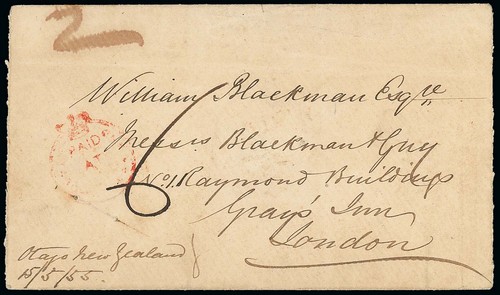 2
William Blackman Esqre
Messrs Blackman & Guy
6
No 1. Raymond Buildings
Gray's Inn
London
PAID
Otago New Zealand
15/5/55.